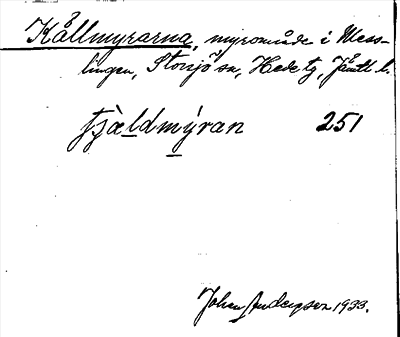 Källmyrarna, myrområde i Mess-
lingen, Storsjö sn, Hede tg, Jämtl. l.
tjældmýran 251
Johan Anderson 1933.